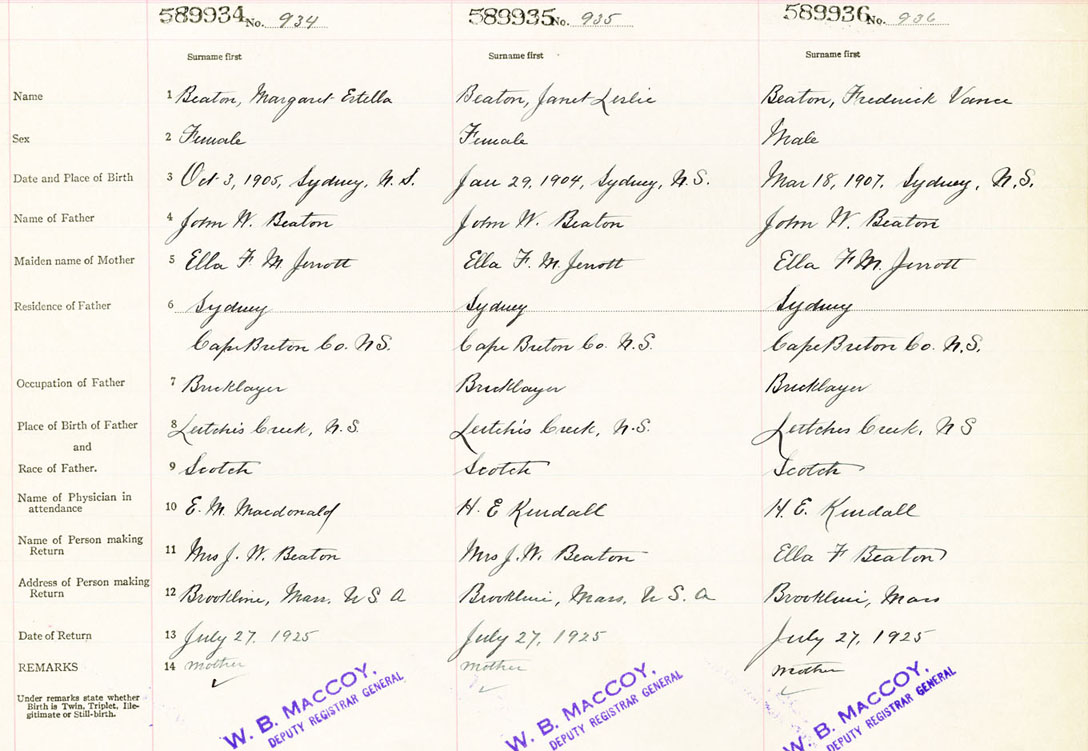 589934 No. 934 589935 No. 935 589936 No. 936
Surname first Surname first Surname first
Name 1 Beaton, Margaret Estella Beaton, Janet Leslie Beaton, Frederick Vance
Sex 2 Female Female Male
Date and Place of Birth 3 Oct 3, 1905, Sydney, N.S. Jan 29, 1904, Sydney, N.S. Mar 18, 1907, Sydney, N.S.
Name of Father 4 John W. Beaton John W. Beaton John W. Beaton
Maiden name of Mother 5 Ella F. M. Jerrott Ella F. M. Jerrott Ella F M. Jerrott
Residence of Father 6 Sydney Sydney Sydney
Cape Breton Co. N.S. Cape Breton Co. N.S. Cape Breton Co. N.S.
Occupation of Father 7 Bricklayer Bricklayer Bricklayer
Place of Birth of Father 8 Leitchis Creek, N.S. Leitchis Creek, N.S. Leitches Creek, N S
and
Race of Father. 9 Scotch Scotch Scotch
Name of Physician in
attendance 10 E. M. Macdonald H. E Kendall H. E. Kendall
Name of Person making
Return 11 Mrs J. W. Beaton Mrs J. W. Beaton Ella F Beaton
Address of Person making
Return 12 Brookline, Mass. U S A Brookline, Mass. U.S.A Brookline, Mass
Date of Return 13 July 27, 1925 July 27, 1925 July 27, 1925
REMARKS 14 mother mother mother
Under remarks state whether
Birth is Twin, Triplet, Ille-
gitimate or Still-birth.
W. B. MACCOY, W. B. MACCOY, W. B. MACCOY,
DEPUTY REGISTRAR GENERAL DEPUTY REGISTRAR GENERAL DEPUTY REGISTRAR GENERAL